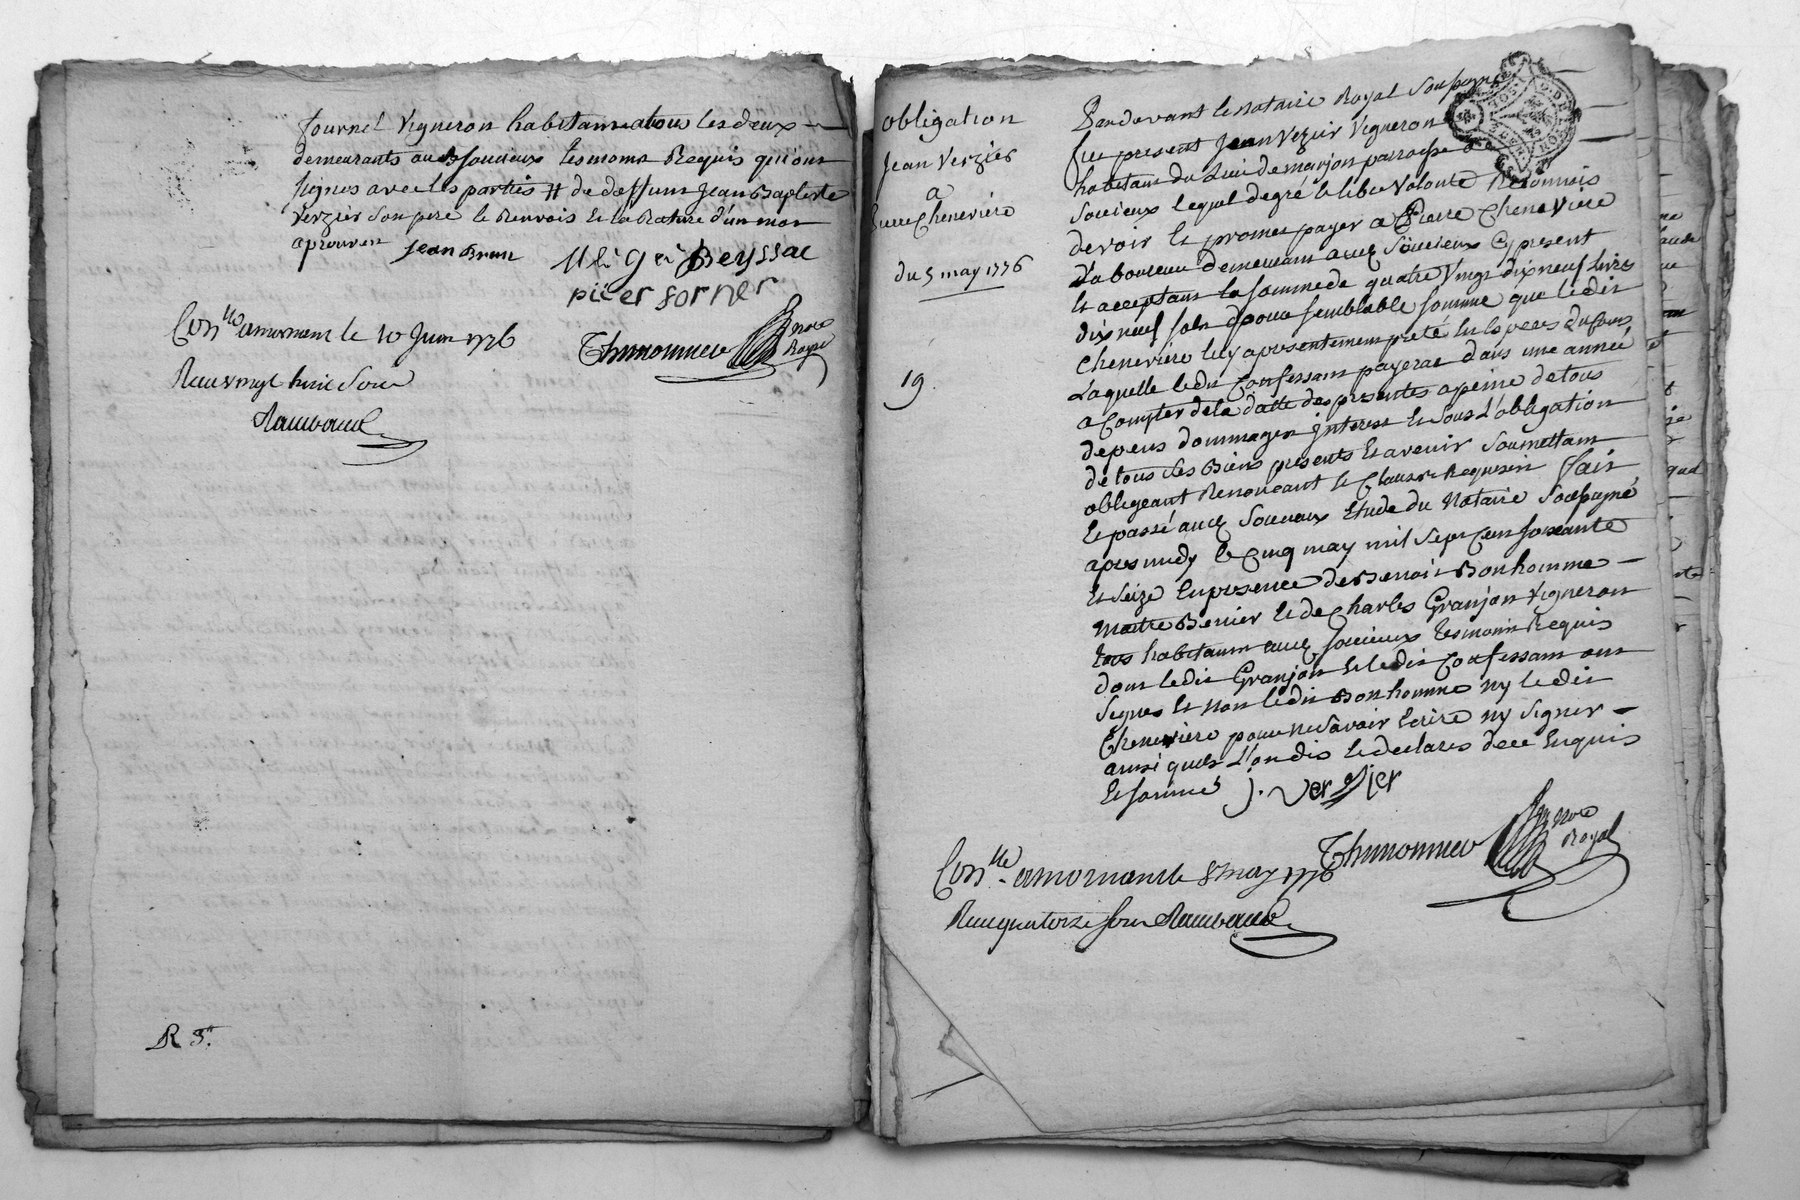 fournel Vigneron habitants tous les deux
demeurants audt Soucieux tesmoins Requis qui ont
signés avec les parties # de deffunt Jean Baptiste
Verzier son pere le Renvois et la Rature d'un mot
aprouven Jean Brun
pier forner
Thimonnier nore Royal
Conlle a mornant le 10 Juin 1776
Recu vingt huit sous
Rambaud
R 8.
obligation
Jean Verzier
a
pierre Cheneviere
du 5 may 1776
19
Pardevant le notaire Royal Soussigné
fut present Jean Verzier Vigneron
habitant du Lieu de marjon parroisse de
Soucieux lequel de gré et libre Volonté Reconnois
devoir et promet payer a Pierre Cheneviere
Laboureur demeurant audt Soucieux Cy present
et acceptant la somme de quatre Vingt dix neuf livres
dix neuf sols pour semblable somme que ledit
Cheneviere luy a presentement preté
Laquelle ledit Confessant payerat dans une année
a Compter de la datte des presentes a peine de tous
depens dommages interest et sous L'obligation
de tous ses Biens presents et avenir Soumettant
obligeant Renonceant et Clauses Requises fait
et passé audt Soucieux Etude du Notaire Soussigné
apres midy le Cinq may mil sept Cent soixante
et Seize En presence de Benoit Bonhomme
maitre et de Charles Granjon Vigneron
tous habitants audt Soucieux tesmoins Requis
dont ledit Granjon et ledit Confessant ont
Signes et non ledit Bonhomme ny ledit
Cheneviere pour ne Savoir Ecrire ny Signer
ainsi quils L'on dit et declares de ce Enquis
et sommés J. Versier
Thimonnier nore Royal
Conlle a mornant le 8 may 1776
Recu quatorze sous Rambaud